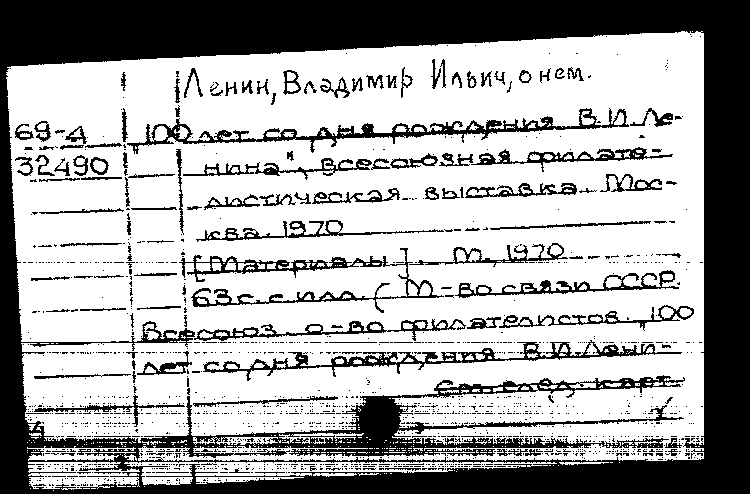 Ленин, Владимир Ильич, о нем.
69-4 "100 лет со дня рождения В.И. Ле-
32490 нина", всесоюзная филате-
листическая выставка. Мос-
ква. 1970
[Материалы]. М., 1970
63 с. с илл. (М-во связи СССР.
Всесоюз. о-во филателистов. "100
лет со дня рождения В.И. Лени-
См. след. карт.